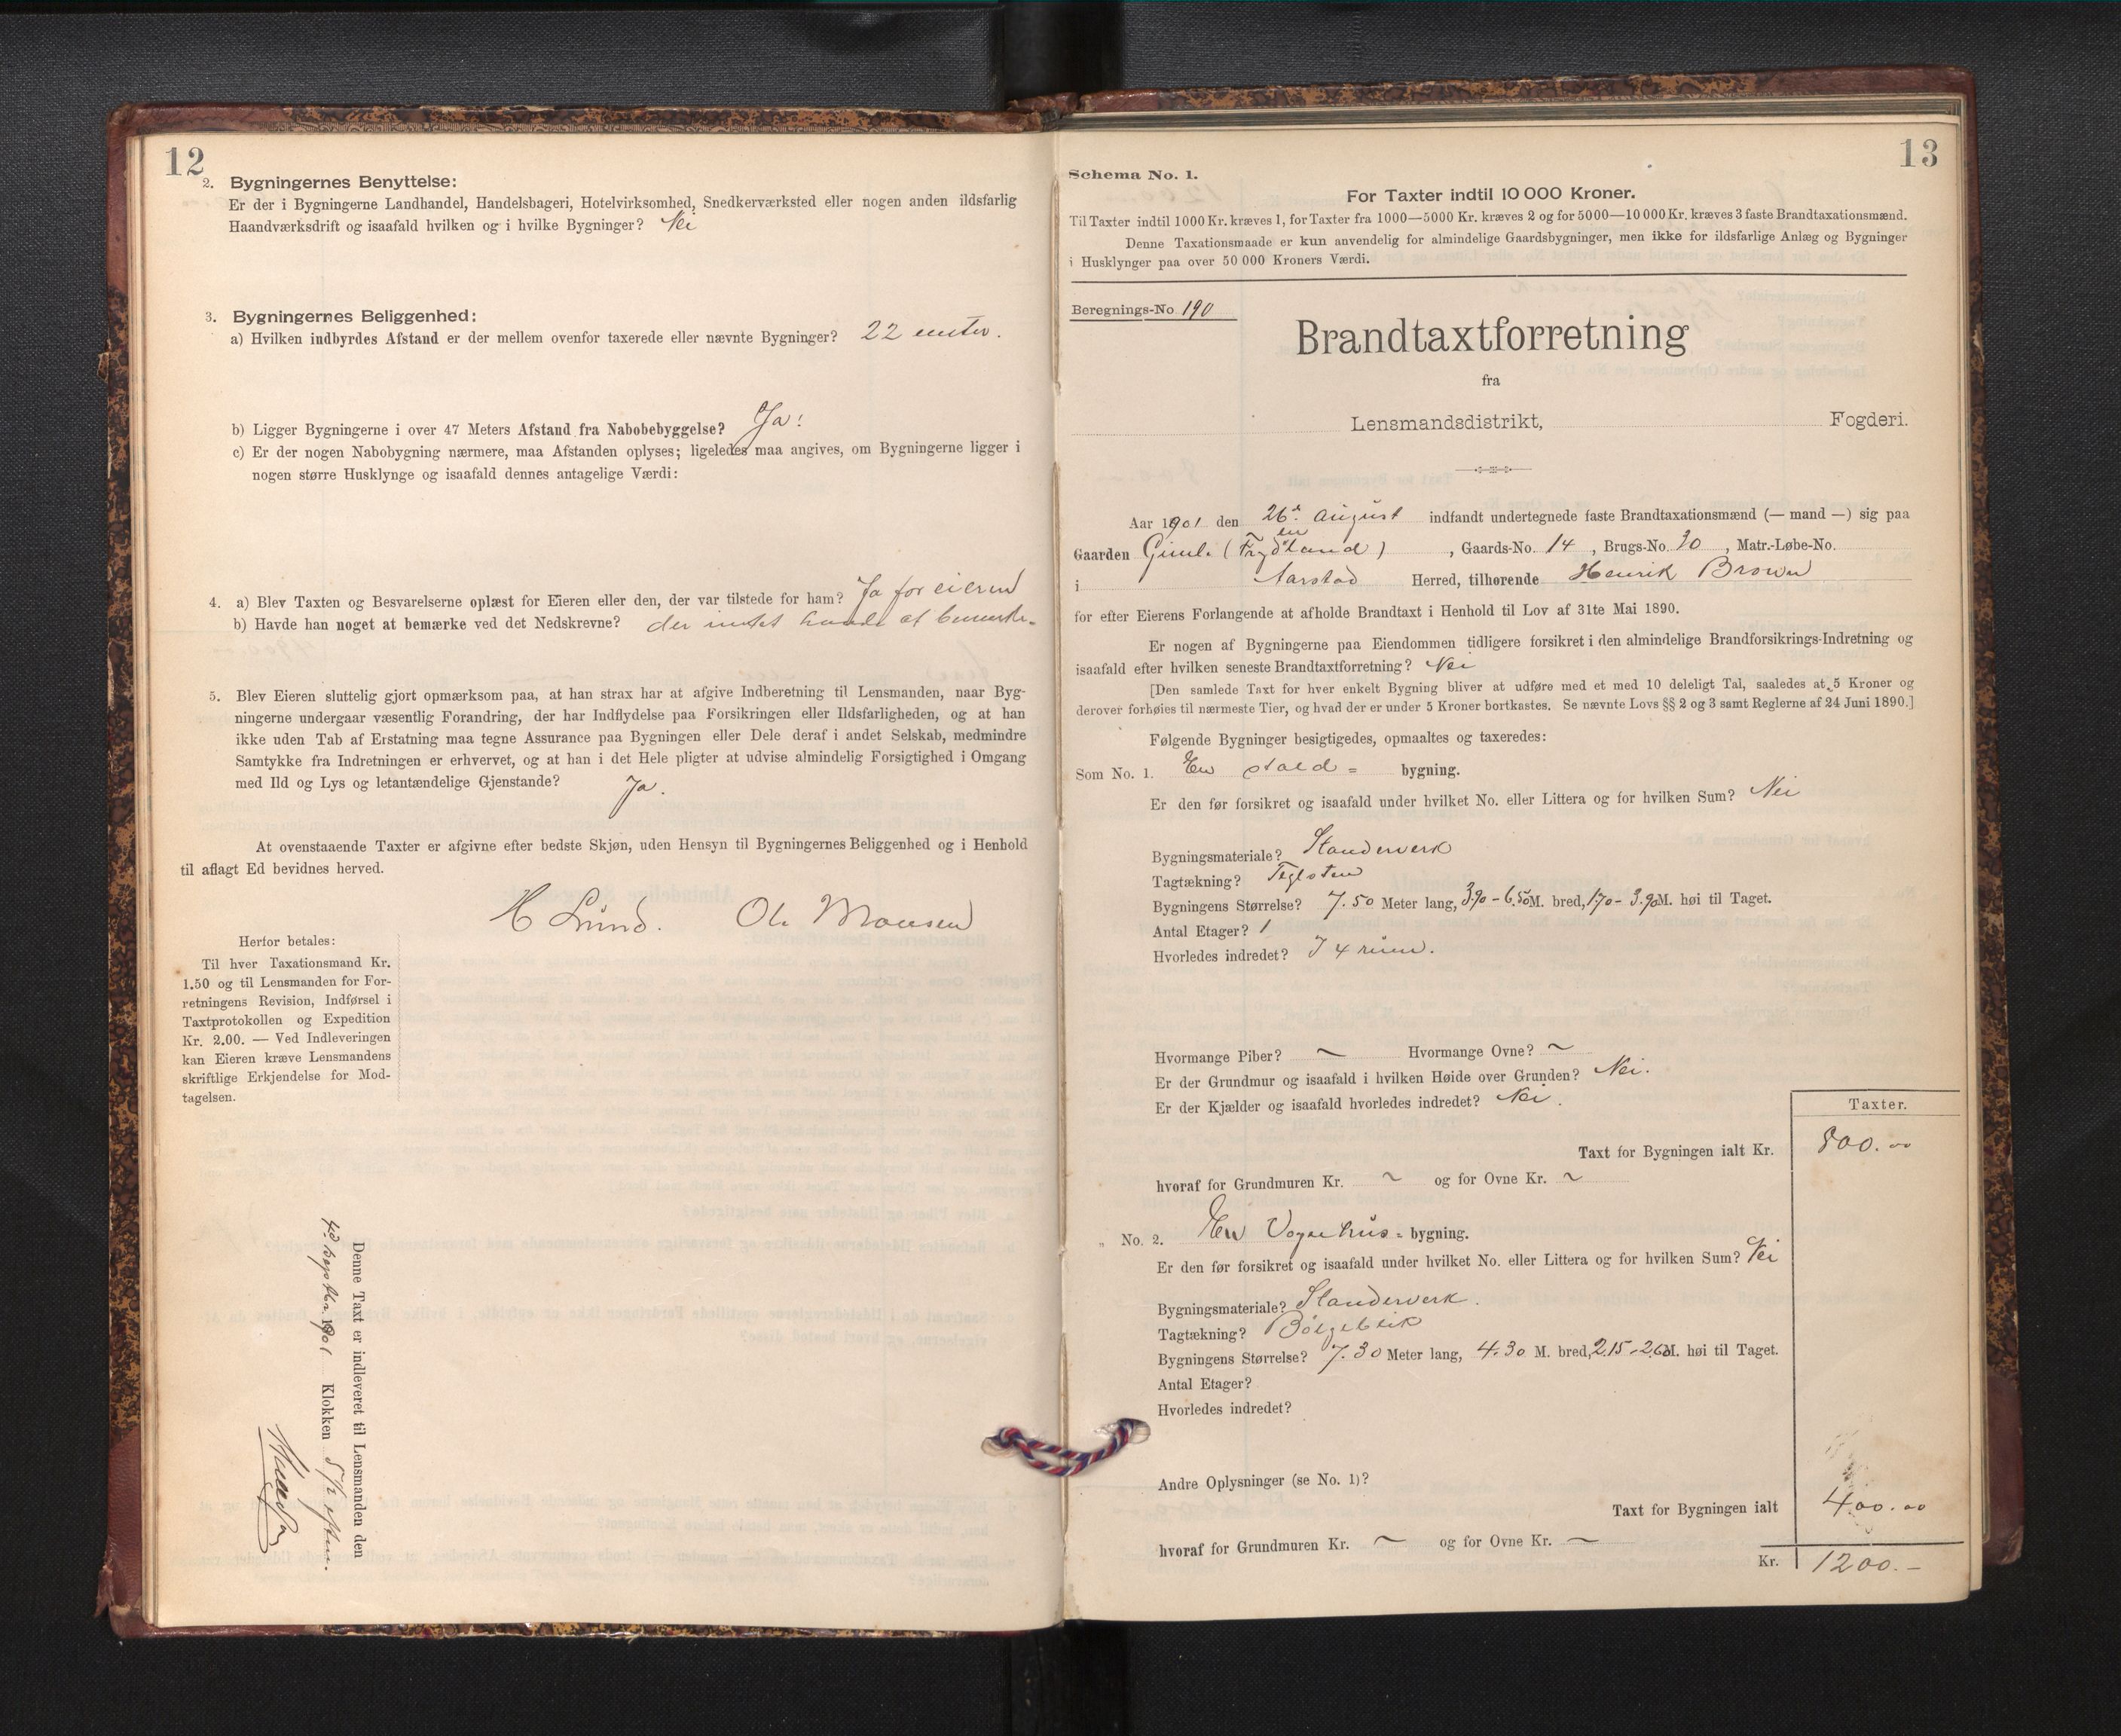 12
2. Bygningernes Benyttelse:
Er der i Bygningerne Landhandel, Handelsbageri, Hotelvirksomhed, Snedkerværksted eller nogen anden ildsfarlig
Haandværksdrift og isaafald hvilken og i hvilke Bygninger? Nei
3. Bygningernes Beliggenhed:
a) Hvilken indbyrdes Afstand er der mellem ovenfor taxerede eller nævnte Bygninger? 22 meter.
b) Ligger Bygningerne i over 47 Meters Afstand fra Nabobebyggelse? Ja!
c) Er der nogen Nabobygning nærmere, maa Afstanden oplyses; ligeledes maa angives, om Bygningerne ligger i
nogen større Husklynge og isaafald dennes antagelige Værdi:
4. a) Blev Taxten og Besvarelserne oplæst for Eieren eller den, der var tilstede for ham? Ja for eieren
b) Havde han noget at bemærke ved det Nedskrevne? der intet havde at bemerke.
5. Blev Eieren sluttelig gjort opmærksom paa, at han strax har at afgive Indberetning til Lensmanden, naar Byg-
ningerne undergaar væsentlig Forandring, der har Indflydelse paa Forsikringen eller Ildsfarligheden, og at han
ikke uden Tab af Erstatning maa tegne Assurance paa Bygningen eller Dele deraf i andet Selskab, medmindre
Samtykke fra Indretningen er erhvervet, og at han i det Hele pligter at udvise almindelig Forsigtighed i Omgang
med Ild og Lys og letantændelige Gjenstande? Ja.
At ovenstaaende Taxter er afgivne efter bedste Skjøn, uden Hensyn til Bygningernes Beliggenhed og i Henhold
til aflagt Ed bevidnes herved.
H Lund. Ole Monsen
Herfor betales:
Til hver Taxationsmand Kr.
1.50 og til Lensmanden for For-
retningens Revision, Indførsel i
Taxtprotokollen og Expedition
Kr. 2.00. — Ved Indleveringen
kan Eieren kræve Lensmandens
skriftlige Erkjendelse for Mod-
tagelsen.
Denne Taxt er indleveret til Lensmanden den
septbr. 1901 Klokken 5 1/2 efterm.
13
Schema No. 1.
For Taxter indtil 10 000 Kroner.
Til Taxter indtil 1000 Kr. kræves 1, for Taxter fra 1000—5000 Kr. kræves 2 og for 5000—10 000 Kr. kræves 3 faste Brandtaxationsmænd.
Denne Taxationsmaade er kun anvendelig for almindelige Gaardsbygninger, men ikke for ildsfarlige Anlæg og Bygninger
i Husklynger paa over 50 000 Kroners Værdi.
Beregnings-No 190
Brandtaxtforretning
fra
Lensmandsdistrikt, Fogderi.
Aar 1901 den 26de August indfandt undertegnede faste Brandtaxationsmænd (— mand —) sig paa
Gaarden Gimle (Frydenlund), Gaards-No. 14, Brugs-No. 30, Matr.-Løbe-No.
i Aarstad Herred, tilhørende Henrik Brown
for efter Eierens Forlangende at afholde Brandtaxt i Henhold til Lov af 31te Mai 1890.
Er nogen af Bygningerne paa Eiendommen tidligere forsikret i den almindelige Brandforsikrings-Indretning og
isaafald efter hvilken seneste Brandtaxtforretning? Nei
[Den samlede Taxt for hver enkelt Bygning bliver at udføre med et med 10 deleligt Tal, saaledes at 5 Kroner og
derover forhøies til nærmeste Tier, og hvad der er under 5 Kroner bortkastes. Se nævnte Lovs §§ 2 og 3 samt Reglerne af 24 Juni 1890.]
Følgende Bygninger besigtigedes, opmaaltes og taxeredes:
Som No. 1. En stald= bygning.
Er den før forsikret og isaafald under hvilket No. eller Littera og for hvilken Sum? Nei
Bygningsmateriale? Standerverk
Tagtækning? Teglsten
Bygningens Størrelse? 7.50 Meter lang, 3.90 - 6.50 M. bred, 1.70 - 3.90 M. høi til Taget.
Antal Etager? 1
Hvorledes indredet? I 4 rum.
Hvormange Piber? ~ Hvormange Ovne? ~
Er der Grundmur og isaafald i hvilken Høide over Grunden? Nei.
Er der Kjælder og isaafald hvorledes indredet? Nei.
Taxter.
Taxt for Bygningen ialt Kr. 800.00
hvoraf for Grundmuren Kr. ~ og for Ovne Kr. ~
„ No. 2. En Vognhus= bygning.
Er den før forsikret og isaafald under hvilket No. eller Littera og for hvilken Sum? Nei
Bygningsmateriale? Standerverk.
Tagtækning? Bølgeblik
Bygningens Størrelse? 7.30 Meter lang, 4.30 M. bred, 2.15-2.60 M. høi til Taget.
Antal Etager?
Hvorledes indredet?
Andre Oplysninger (se No. 1)?
Taxt for Bygningen ialt 400.00
hvoraf for Grundmuren Kr. ~ og for Ovne Kr. ~
Kr. 1200.-